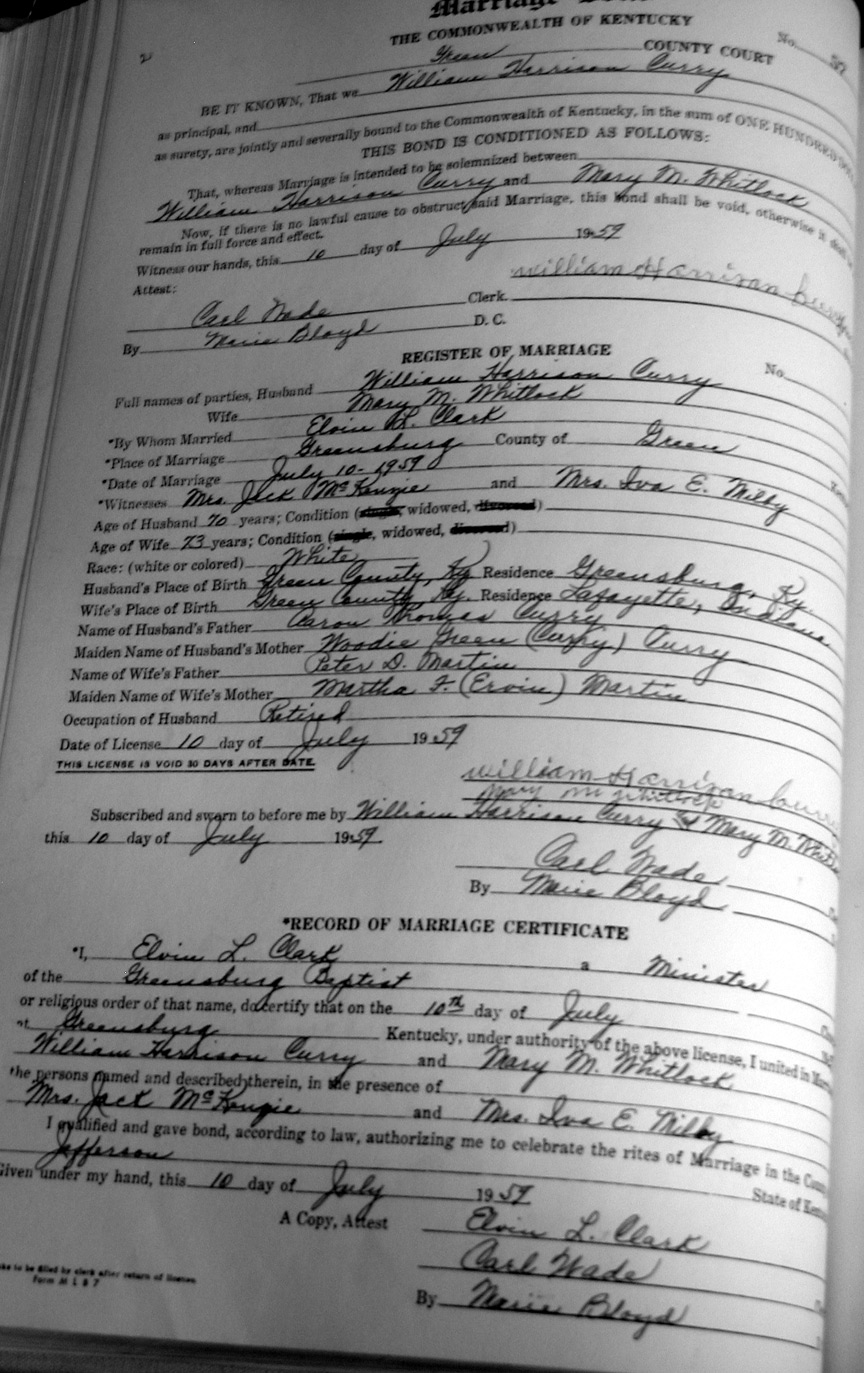 Marriage
THE COMMONWEALTH OF KENTUCKY
No. 37
Green COUNTY COURT
BE IT KNOWN, That we William Harrison Curry
as principal, and
as surety, are jointly and severally bound to the Commonwealth of Kentucky, in the sum of ONE HUNDRED
THIS BOND IS CONDITIONED AS FOLLOWS:
That, whereas Marriage is intended to be solemnized between
William Harrison Curry and Mary M. Whitlock
Now, if there is no lawful cause to obstruct said Marriage, this bond shall be void, otherwise it shall
remain in full force and effect.
Witness our hands, this 10 day of July 1959
Attest: William Harrison Curry
Carl Wade Clerk.
By Marie Bloyd D. C.
REGISTER OF MARRIAGE
No.
Full names of parties, Husband William Harrison Curry
Wife Mary M. Whitlock
*By Whom Married Elvin L. Clark
*Place of Marriage Greensburg County of Green
*Date of Marriage July 10- 1959
*Witnesses Mrs. Jack McKenzie and Mrs. Iva E. Milby
Age of Husband 70 years; Condition (single, widowed, divorced)
Age of Wife 73 years; Condition (single, widowed, divorced)
Race: (white or colored) White
Husband's Place of Birth Green County, Ky Residence Greensburg, Ky.
Wife's Place of Birth Green County, Ky. Residence Lafayette, Indiana
Name of Husband's Father Aaron Thomas Curry
Maiden Name of Husband's Mother Woodie Green (Curry) Curry
Name of Wife's Father Peter D. Martin
Maiden Name of Wife's Mother Martha F. (Ervin) Martin
Occupation of Husband Retired
Date of License 10 day of July 1959
THIS LICENSE IS VOID 30 DAYS AFTER DATE.
William Harrison Curry
Mary M Whitlock
Subscribed and sworn to before me by William Harrison Curry & Mary M. Whitlock
this 10 day of July 1959.
Carl Wade
By Marie Bloyd
*RECORD OF MARRIAGE CERTIFICATE
*I, Elvin L. Clark a Minister
of the Greensburg Baptist
or religious order of that name, do certify that on the 10th day of July
at Greensburg Kentucky, under authority of the above license, I united in
William Harrison Curry and Mary M. Whitlock
the persons named and described therein, in the presence of
Mrs. Jack McKenzie and Mrs. Iva E. Milby
I qualified and gave bond, according to law, authorizing me to celebrate the rites of Marriage in the County
Jefferson State of
Given under my hand, this 10 day of July 1959
A Copy, Attest Elvin L. Clark
Carl Wade
to be filled by clerk after return of license
Form M L B 7
By Marie Bloyd